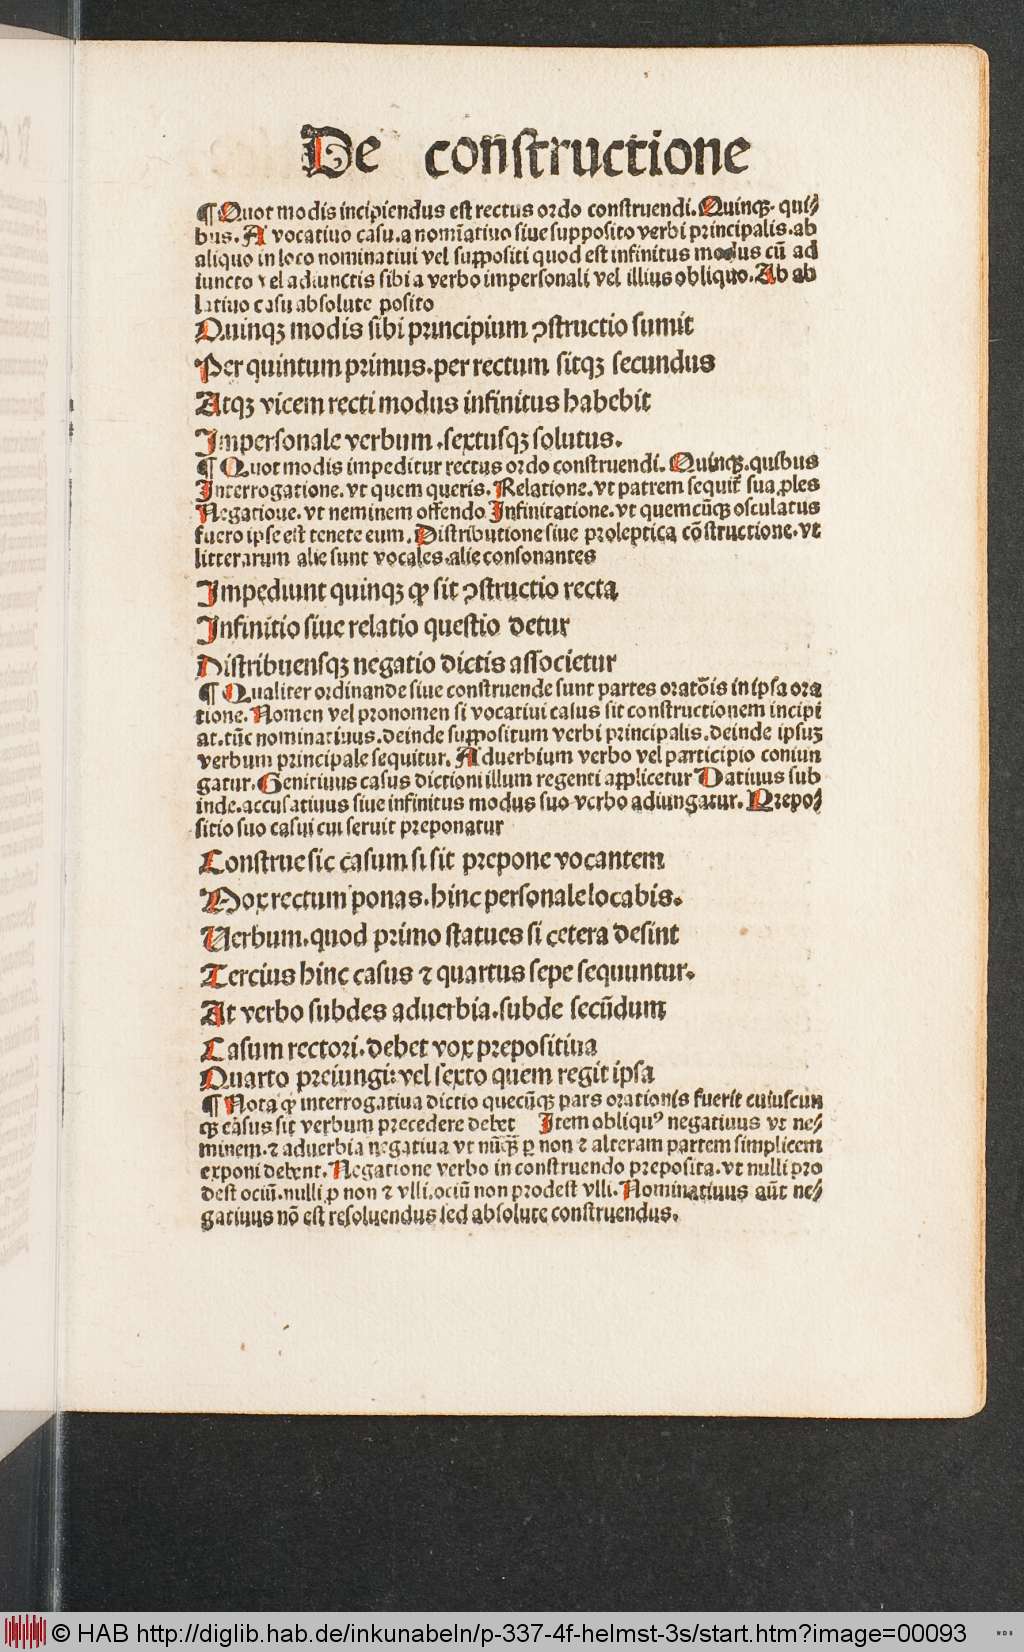 De constructione
¶ Quot modis incipiendus est rectus ordo construendi. Quinqꝫ. qui⸗
bus. A vocatiuo casu. a nomīatiuo siue supposito verbi principalis. ab
aliquo in loco nominatiui vel suppositi quod est infinitus modus cū ad
iuncto vel adiunctis sibi a verbo impersonali vel illius obliquo. Ab ab
latiuo casu absolute posito
Quinqꝫ modis sibi principium ꝯstructio sumit
Per quintum primus. per rectum sitqꝫ secundus
Atqꝫ vicem recti modus infinitus habebit
Impersonale verbum. sextusqꝫ solutus.
¶ Quot modis impeditur rectus ordo construendi. Quinqꝫ. quibus
Interrogatione. vt quem queris. Relatione. vt patrem sequit̄ sua ꝓles
Negatioue. vt neminem offendo Infinitatione. vt quemcūqꝫ osculatus
fuero ipse est tenete eum. Distributione siue proleptica cōstructione. vt
litterarum alie sunt vocales. alie consonantes
Impediunt quinqꝫ ꝙ sit ꝯstructio recta
Infinitio siue relatio questio detur
Distribuensqꝫ negatio dictis associetur
¶ Qualiter ordinande siue construende sunt partes oratōis in ipsa ora
tione. Nomen vel pronomen si vocatiui casus sit constructionem incipi
at. tūc nominatiuus. deinde suppositum verbi principalis. deinde ipsuꝫ
verbum principale sequitur. Aduerbium verbo vel participio coniun
gatur. Genitiuus casus dictioni illum regenti applicetur Datiuus sub
inde. accusatiuus siue infinitus modus suo verbo adiungatur. Prepo⸗
sitio suo casui cui seruit preponatur
Construe sic casum si sit prepone vocantem
Mox rectum ponas. hinc personale locabis.
Uerbum. quod primo statues si cetera desint
Tercius hinc casus ⁊ quartus sepe sequuntur.
At verbo subdes aduerbia. subde secūdum
Casum rectori. debet vox prepositiua
Quarto preiungi: vel sexto quem regit ipsa
¶ Nota ꝙ interrogatiua dictio quecūqꝫ pars orationis fuerit cuiuscun
qꝫ casus sit verbum precedere debet Item obliquꝰ negatiuus vt ne⸗
minem. ⁊ aduerbia negatiua vt nūqꝫ̄ ꝑ non ⁊ alteram partem simplicem
exponi debent. Negatione verbo in construendo preposita. vt nulli pro
dest ociū. nulli ꝑ non ⁊ vlli. ociū non prodest vlli. Nominatiuus aūt ne⸗
gatiuus nō est resoluendus sed absolute construendus.
© HAB http://diglib.hab.de/inkunabeln/p-337-4f-helmst-3s/start.htm?image=00093